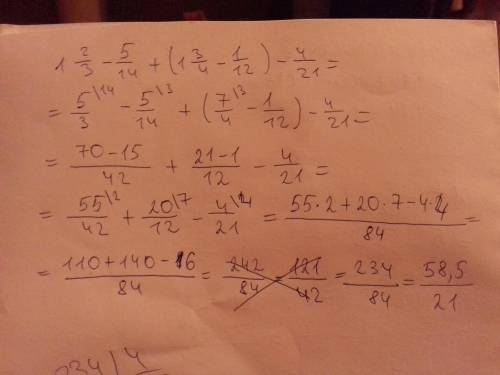 1 2/3 - 5/14 + (1 3/4 - 1/12) - 4/21 =
= 5/3 \14 - 5/14 \3 + (7/4 \3 - 1/12) - 4/21 =
= 70-15/42 + 21-1/12 - 4/21 =
= 55/42 \2 + 20/12 \7 - 4/21 \4 = 55·2+20·7-4·4/84 =
= 110+140-16/84 = 242/84 = 121/42 = 234/84 = 58,5/21
234 | 4